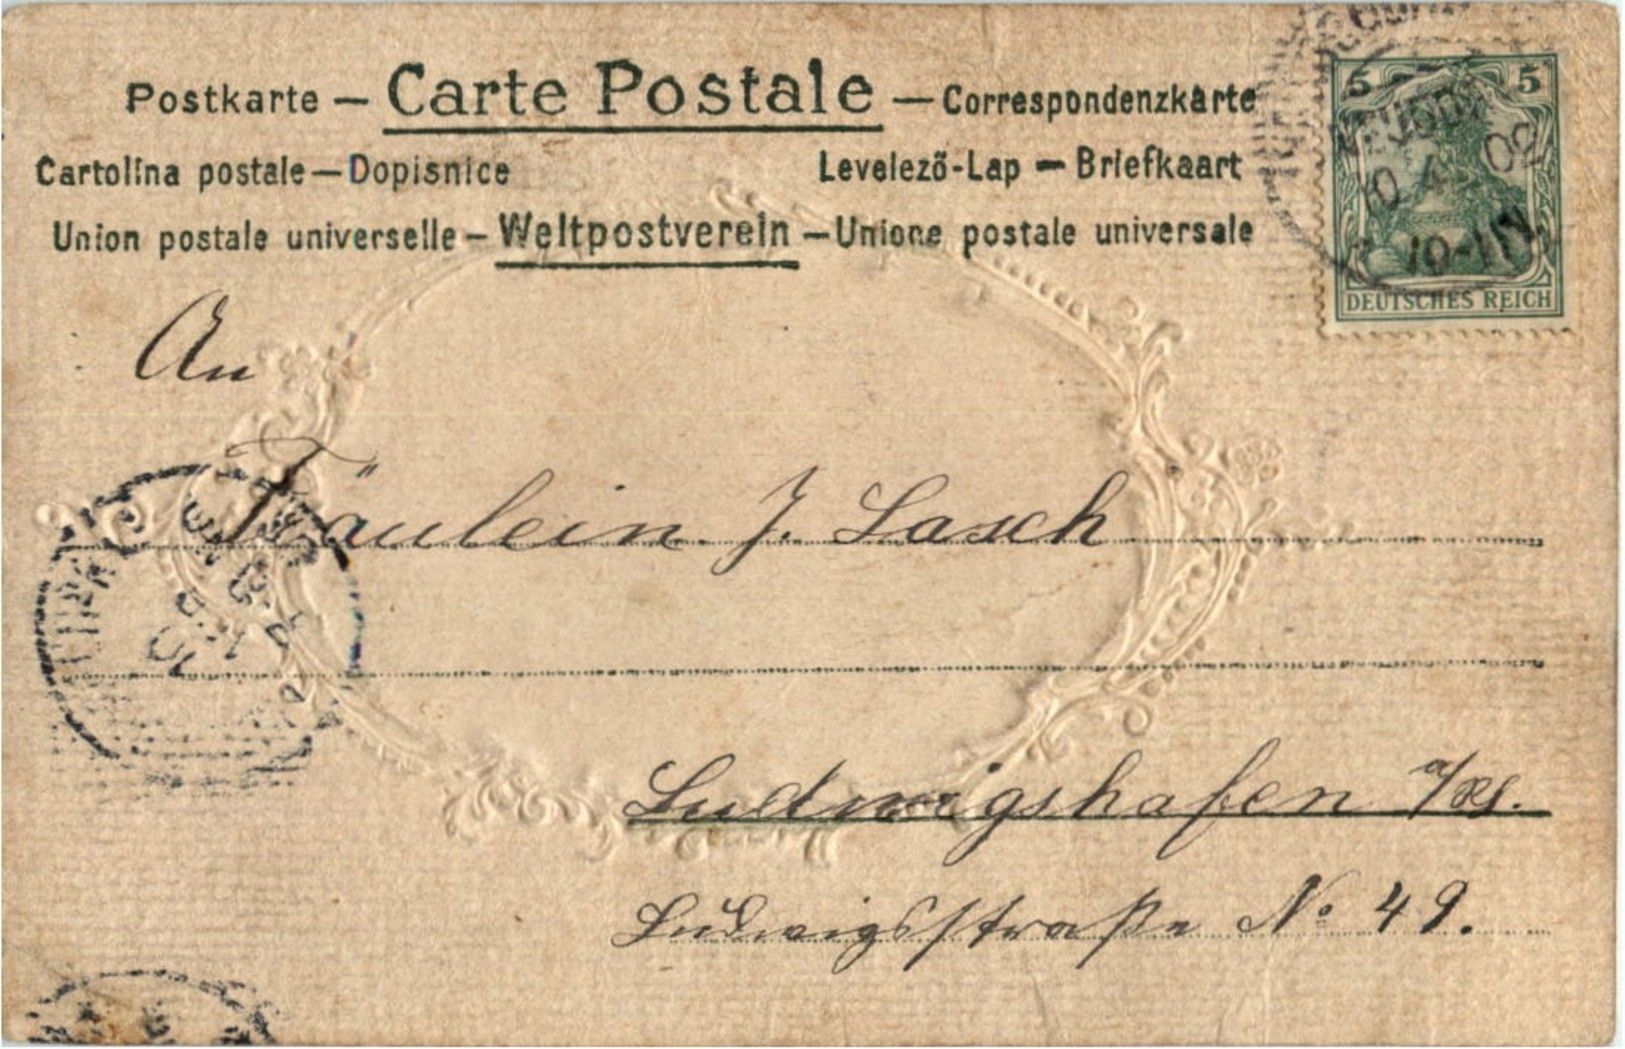 Postkarte – Carte Postale – Correspondenzkarte
Cartolina postale – Dopisnice Levelező-Lap – Briefkaart
Union postale universelle – Weltpostverein – Unione postale universale
5 5
02
10-11 N
DEUTSCHES REICH
An
Fräulein J. Lasch
Ludwigshafen a/Rh.
Ludwigsstraße No 49.